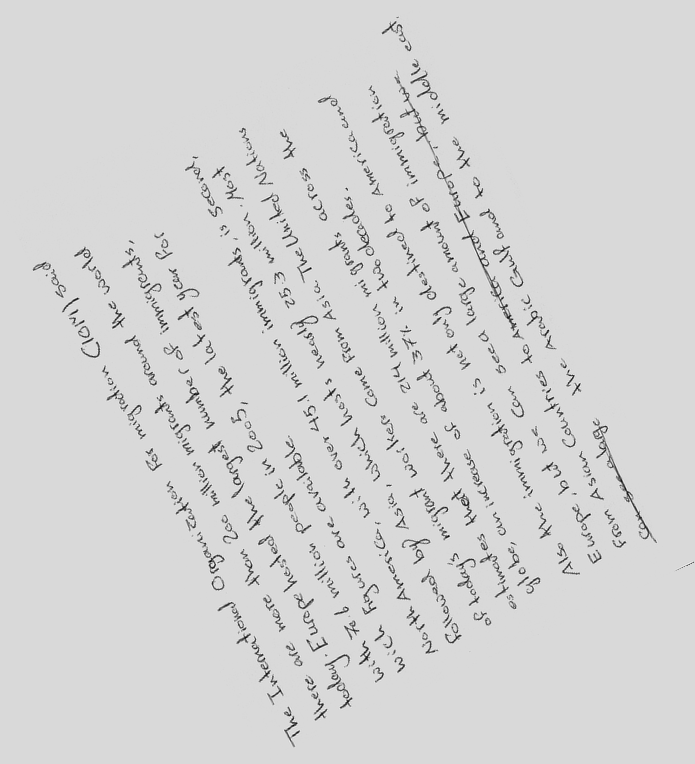 The International Organization For migration (IOM) said
there are more then 200 million migrants around the world
today. Europe hosted the largest number of immigrants,
with 70.6 million people in 2005, the latest year For
which Figures are available.
North America, with over 45.1 million immigrants, is Second,
Followed by Asia, which hosts nearly 25.3 million. Most
of today's migrant workers Come From Asia. The United Nations
estimates that there are 214 million migrants across the
globe, an increase of about 37% in two decades.
Also the immigration is not only destined to America and
Europe, but we Can see a large amount of immigration
From Asian Countries to America and Europe, but we
the Arabic Gulf and to the middle east.